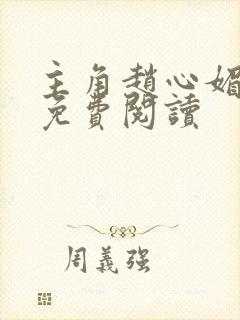 主角趙心媚
免費閱讀
周義强